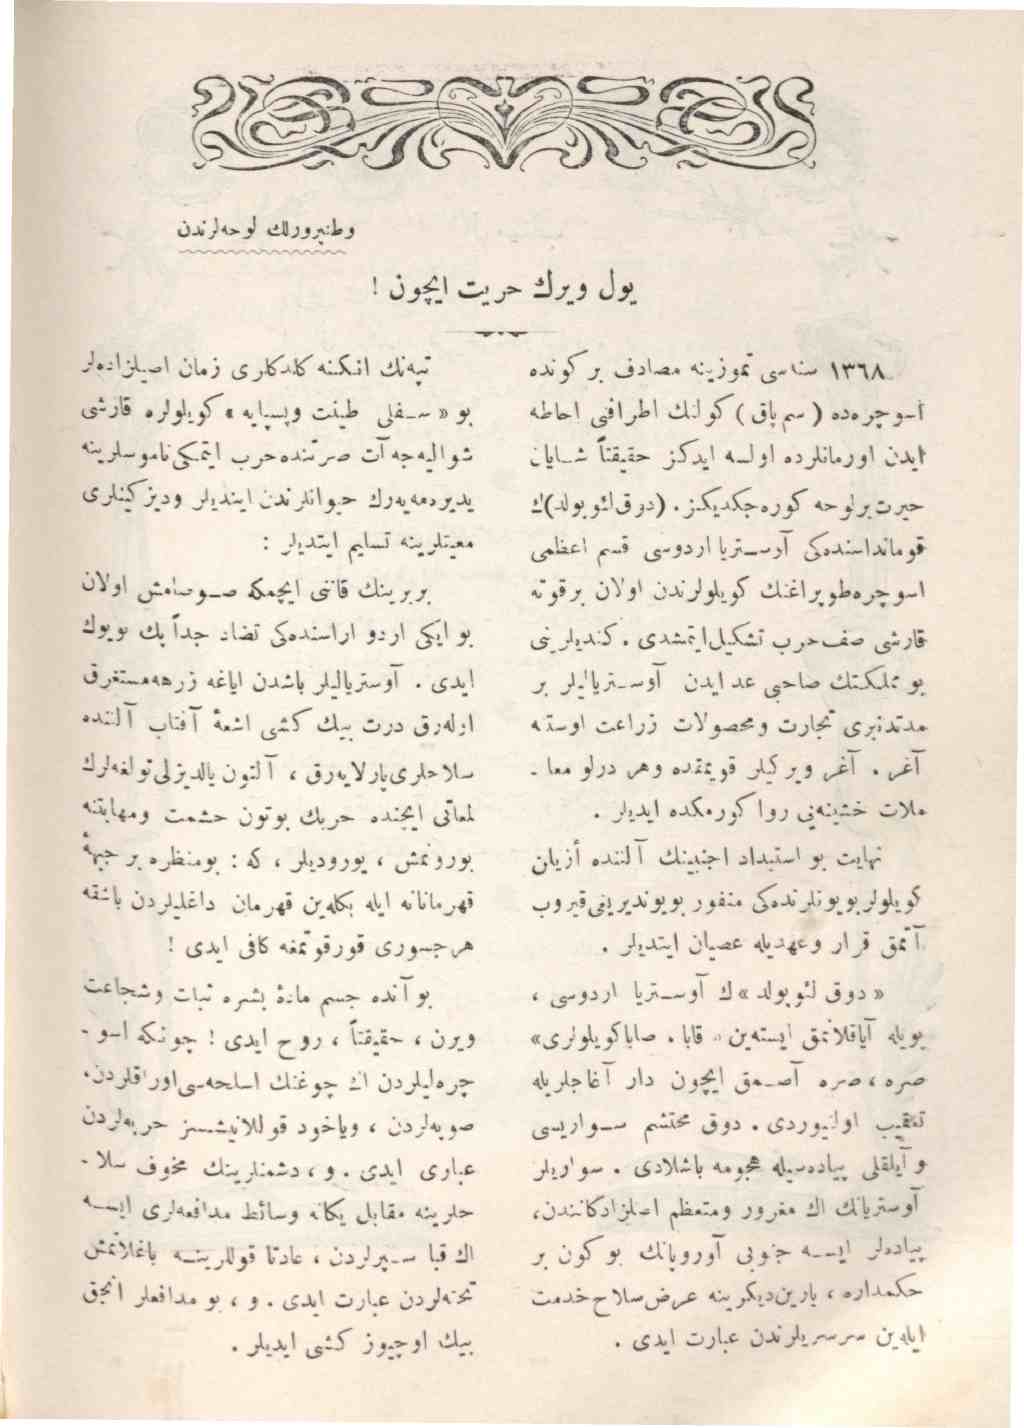 وطنپرورلك لوحه‌لرندن
یول ویرك حریت ایچون !
١٣٦٨ سنه‌سی تموزینه مصادف بر كونده
اسوچره‌ده ( سم پاق ) كولنك اطرافنی احاطه
ایدن اورمانلرده اولسه ایدكز حقیقتاً شایان
حیرت برلوحه كوره‌جكدیكز . (دوق لئوپولد)ك
قومانداسنده‌كی آوستریا اردوسی قسم اعظمی
اسوچره طوپراغنك كویلولرندن اولان برقوته
قارشی صف حرب تشكیل ایتمشدی . كندیلرینی
بو مملكتك صاحبی عد ایدن آوستریالیلر بر
مدتدنبری تجارت ومحصولات زراعت اوستنه
آغر ، آغر ویركیلر قویمقده وهر درلو معا -
ملات خشینه‌یی روا كورمكده ایدیلر .
نهایت بو استبداد اجنبینك آلتنده أزیلن
كویلولر بویونلرنده‌كی منفور بویوندیریغی قیروب
آتمق قرار وعهدیله عصیان ایتدیلر .
« دوق لئوپولد » ك آوستریا اردوسی ،
بویله آیاقلانمق ایسته‌ین « قابا ، صابا كویلولری »
صره ، صره آصمق ایچون دار آغاجلریله
تعقیب اولنیوردی . دوق محتشم سواریسی
و آیلقلی پیاده‌سیله هجومه باشلادی . سواریلر
آوستریانك اك مغرور ومتعظم اصلزادكانندن ،
پیاده‌لر ایسه جنوبی آوروپانك بو كون بر
حكمداره ، یارین دیكرینه عرض سلاح خدمت
ایله‌ین سرسریلرندن عبارت ایدی .
تپه‌نك اتكنه كلدكلری زمان اصیلزاده‌لر
بو « سفلی طینت وپسپایه » كویلولره قارشی
شوالیه‌جه آت صرتنده حرب ایتمكی ناموسلرینه
یدیره‌مه‌یه‌رك حیوانلرندن ایندیلر ودیزكینلری
معیتلرینه تسلیم ایتدیلر :
بربرینك قاننی ایچمكه صوصامش اولان
بو ایكی اردو اراسنده‌كی تضاد جداً پك بویوك
ایدی . آوستریالیلر باشدن ایاغه زرهه مستغرق
اوله‌رق درت بیك كشی اشعهٔ آفتاب آلتنده
سلاحلری پارلایه‌رق ، آلتون یالدیزلی تولغه‌لرك
لمعاتی ایچنده حربك بوتون حشمت ومهابتنه
بورونمش ، یورودیلر ، كه : بومنظره بر جبههٔ
قهرمانانه ایله بكله‌ین قهرمان داغلیلردن باشقه
هر جسوری قورقوتمغه كافی ایدی !
بو آنده جسم مادهٔ بشره ثبات وشجاعت
ویرن ، حقیقتاً ، روح ایدی ! چونكه اسو -
چره‌لیلردن اك چوغنك اسلحه‌سی اوراقلردن ،
صوپه‌لردن ، ویاخود قوللانیشسز حربه‌لردن
عباری ایدی . و ، دشمنلرینك مخوف سلا -
حلرینه مقابل یكانه وسائط مدافعه‌لری ایسه
اك قبا سپرلردن ، عادتا قوللرینه باغلانمش
تخته‌لردن عبارت ایدی . و ، بو مدافعلر آنجق
بیك اوچیوز كشی ایدیلر .